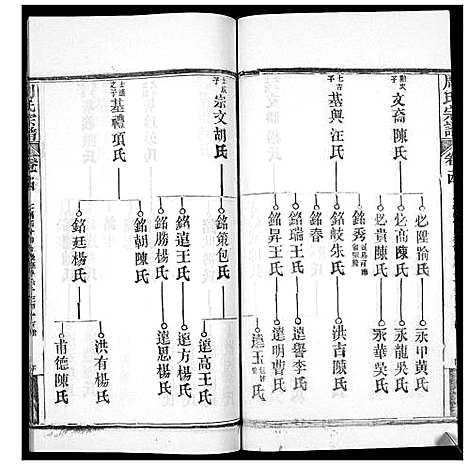 周氏宗譜
卷之四
文裔陳氏
必陞俞氏
必高陳氏
必貴陳氏
永甲黄氏
永龍吳氏
永華吳氏
基興汪氏
銘秀
銘岐朱氏
銘春
銘瑞王氏
銘昇王氏
洪吉陳氏
遠譽李氏
遠明曹氏
遠王氏
宗文胡氏
銘策包氏
銘遠王氏
銘勝楊氏
遠高王氏
遠方楊氏
遠思楊氏
基禮項氏
銘朝陳氏
銘廷楊氏
洪有楊氏
甫德陳氏
周氏宗譜
卷之四